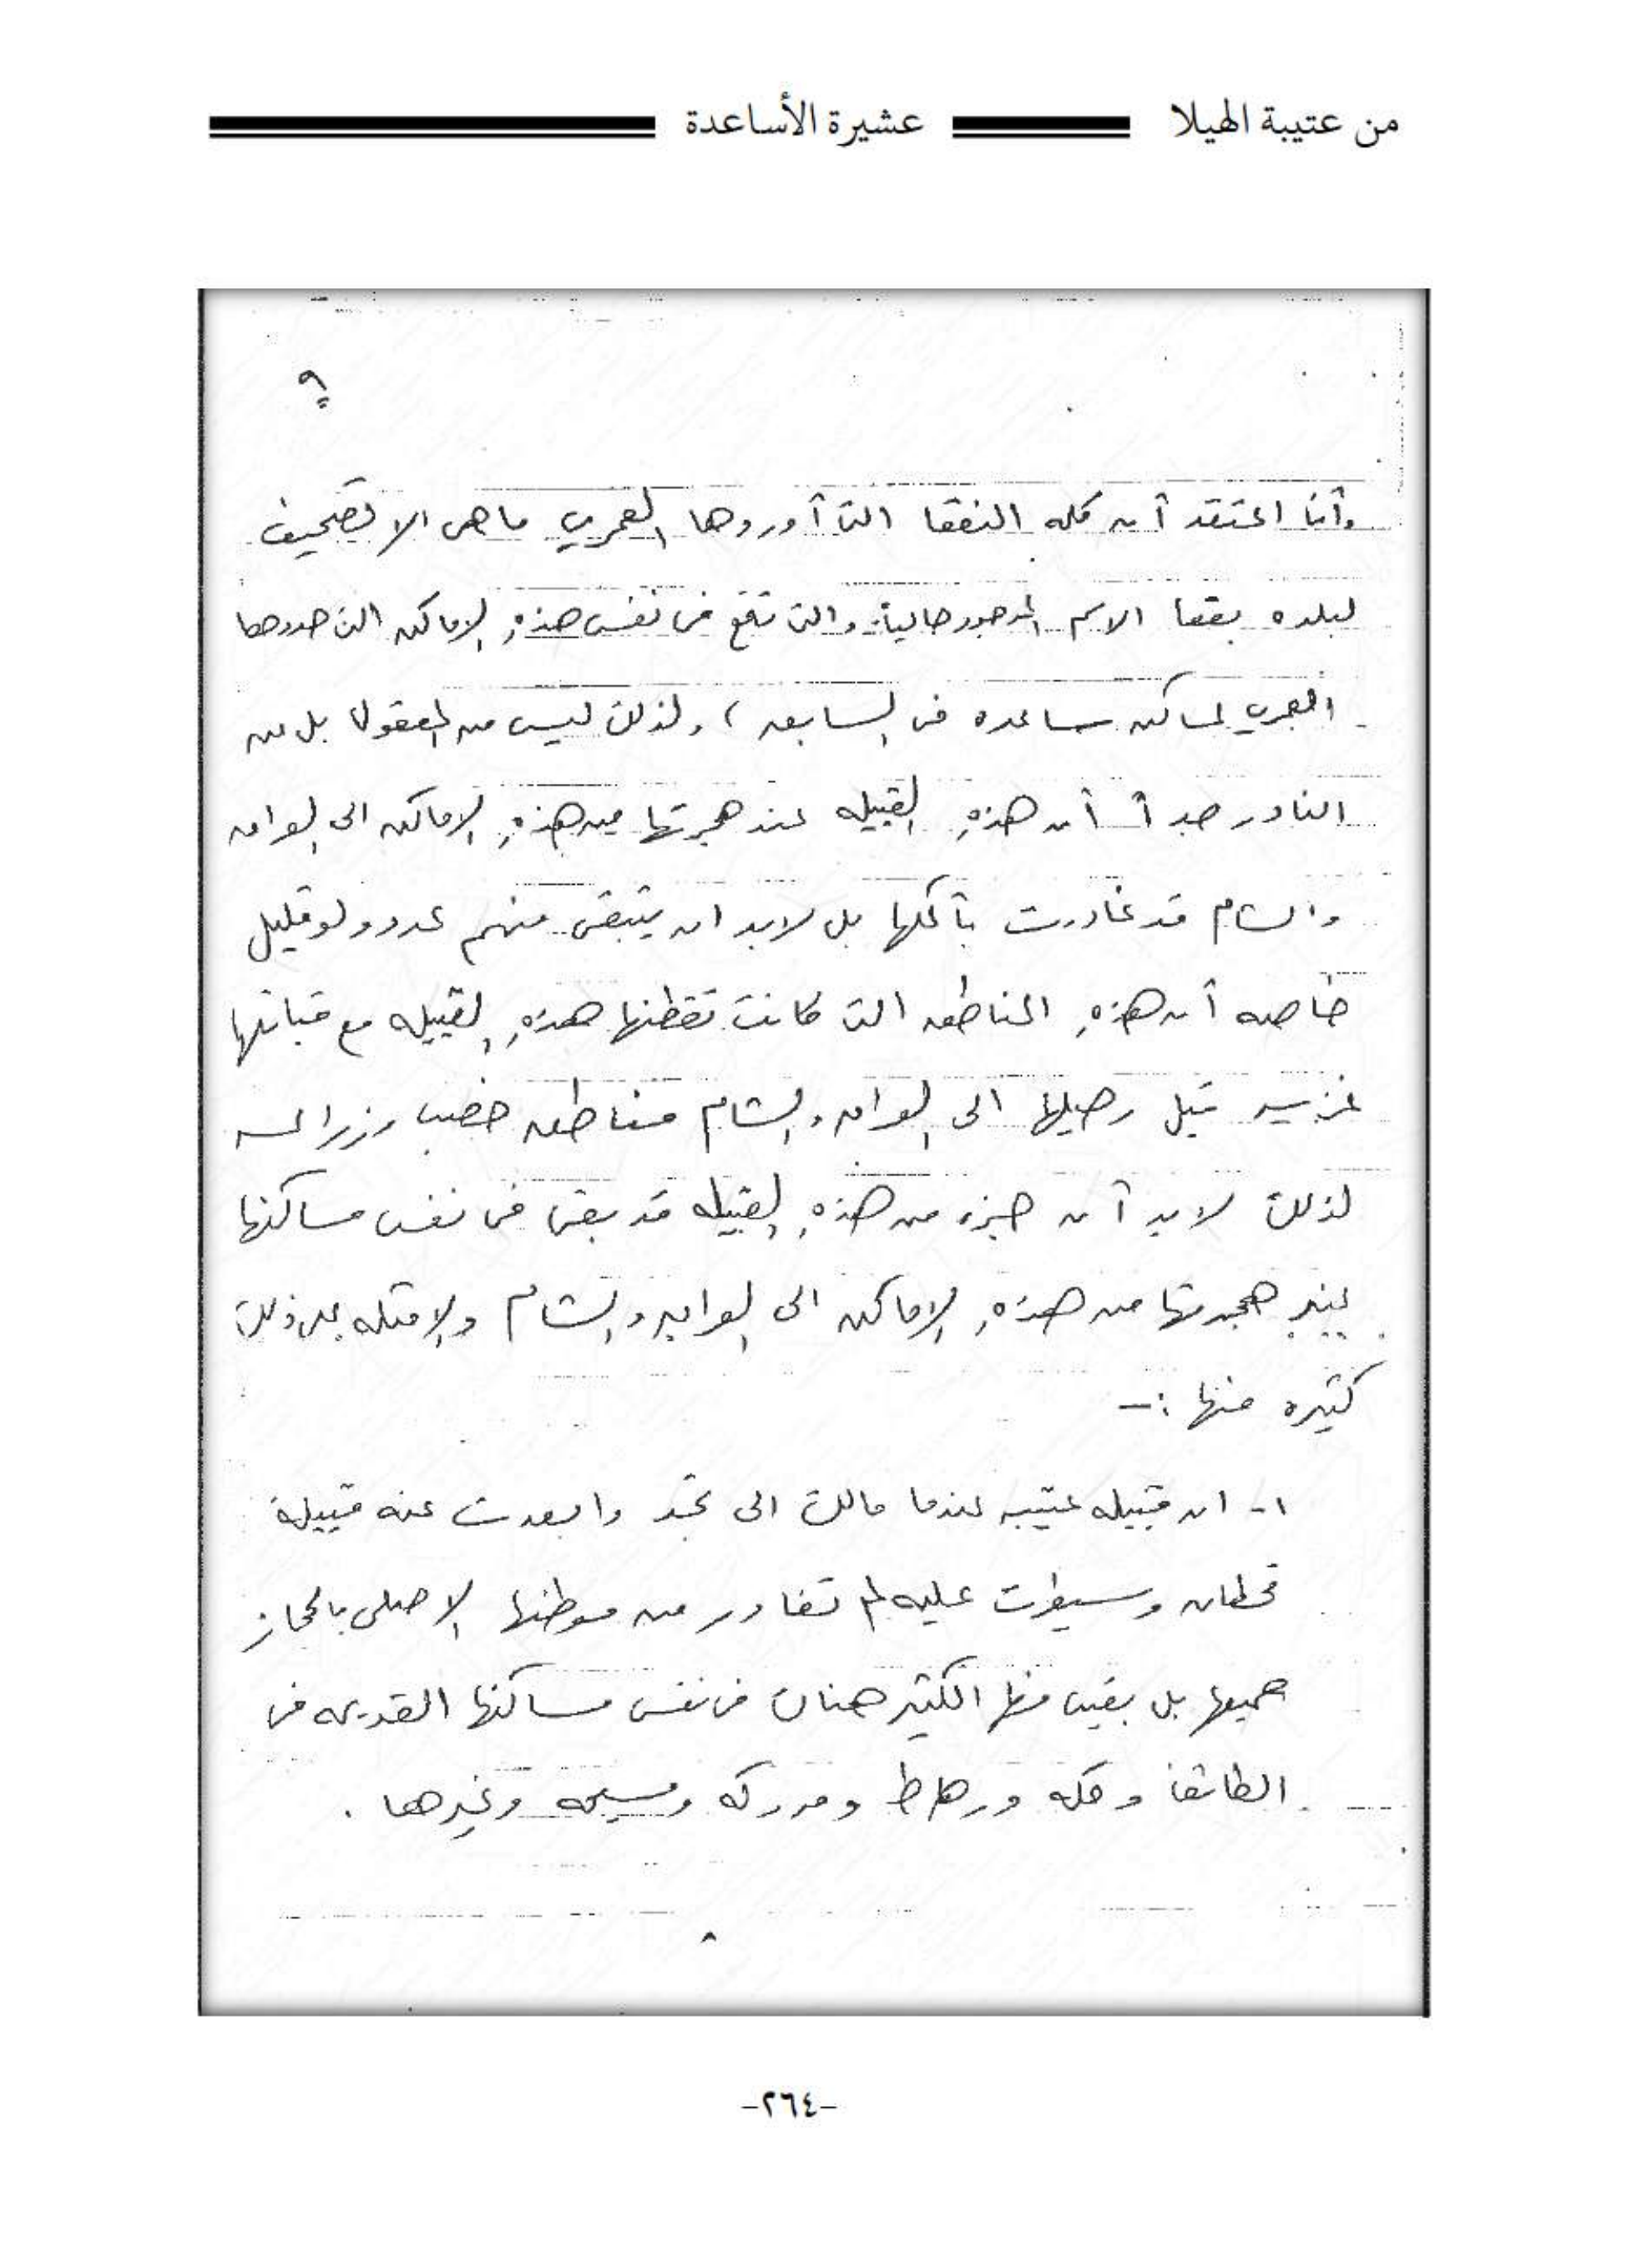 من عتيبة الهيلا عشيرة الأساعدة
٩
وأنا اعتقد أن كلمه النفقا التي أوردها العمري ماهي الا تصحيف
لبلده بقعا الاسم الموجود حالياً والتي تقع في نفس هذه الاماكن التي حددها
العمري لمساكن ساعده في السابق ) ولذلك ليس من المعقول بل من
النادر جداً أن هذه القبيله عند هجرتها من هذه الاماكن الى العراق
والشام قد غادرت بأكملها بل لابد ان يتبقى منهم عدد ولو قليل
خاصه أن هذه المناطق التي كانت تقطنها هذه القبيله مع قبائلها
غزيه قبل رحيلها الى العراق والشام مناطق خصب وزراعه
لذلك لابد أن جزء من هذه القبيله قد بقى في نفس مساكنها
هجرتها من هذه الاماكن الى العراق والشام والامثله على ذلك
كثيره منها :-
١- ان قبيله عتيبه عندما مالت الى نجد وابعدت عنه قبيلة
قحطان وسيطرت عليه لم تغادر من موطنها الاصلي بالحجاز
جميعها بل بقيت منها الكثير هناك في نفس مساكنها القديمه في
الطائف ومكه ورهاط ومدركه ومسيحه وغيرها .
-٢٦٤-